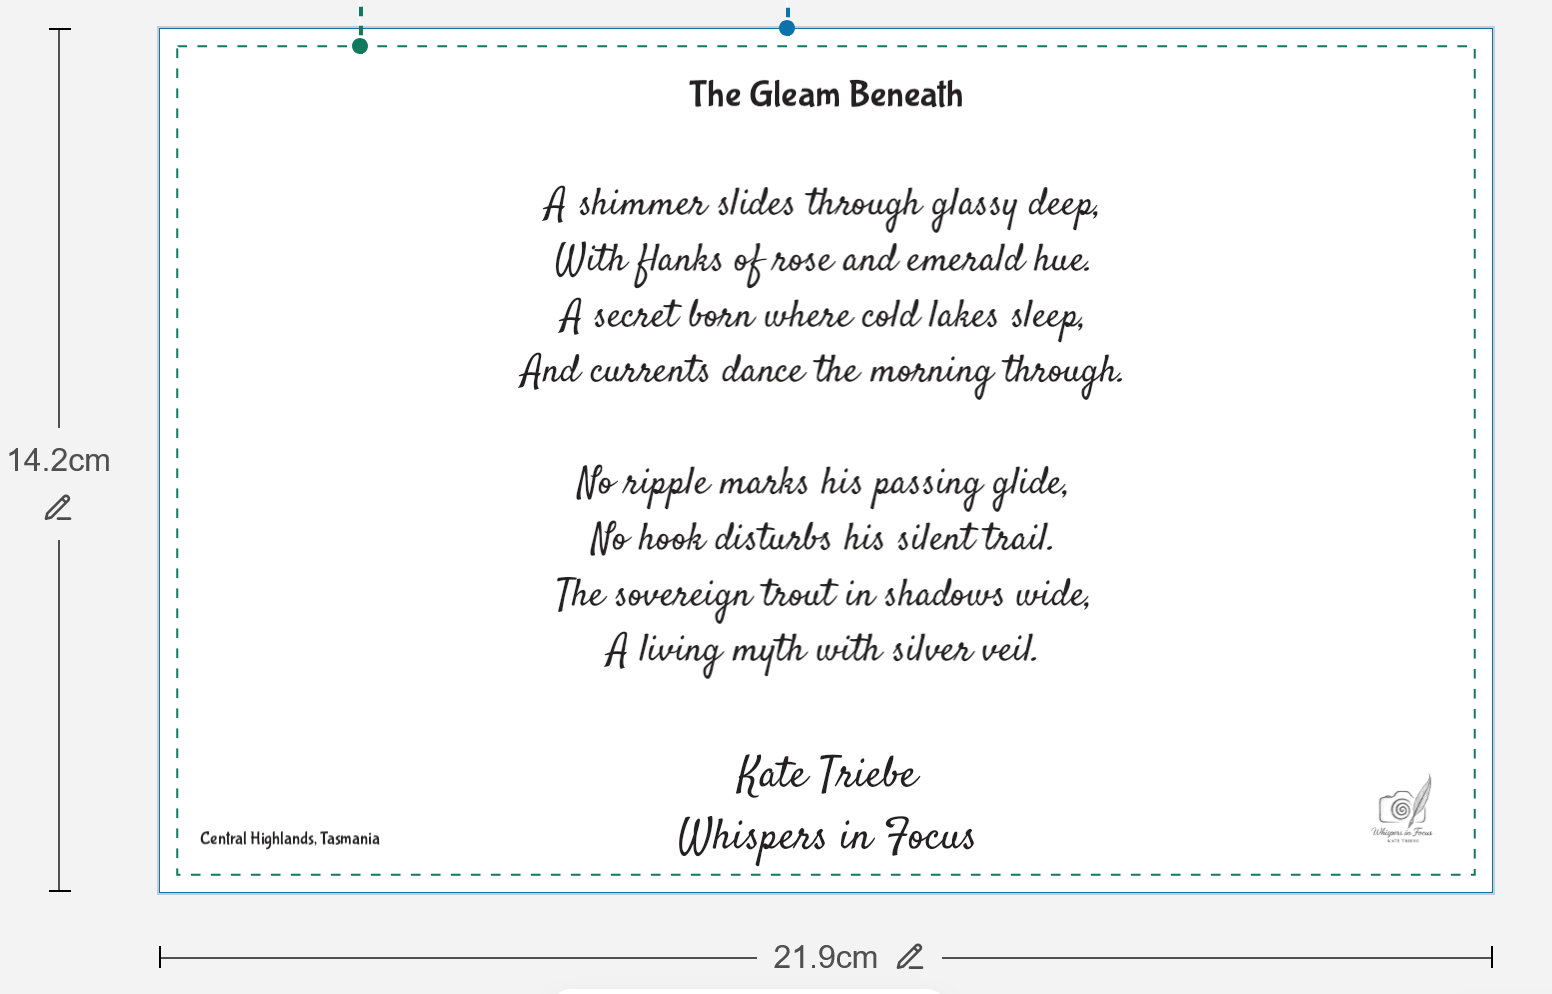 The Gleam Beneath
A shimmer slides through glassy deep,
With flanks of rose and emerald hue.
A secret born where cold lakes sleep,
And currents dance the morning through.
No ripple marks his passing glide,
No hook disturbs his silent trail.
The sovereign trout in shadows wide,
A living myth with silver veil.
Kate Triebe
Whispers in Focus
Central Highlands, Tasmania
Whispers in Focus
KATE TRIEBE
14.2cm
21.9cm